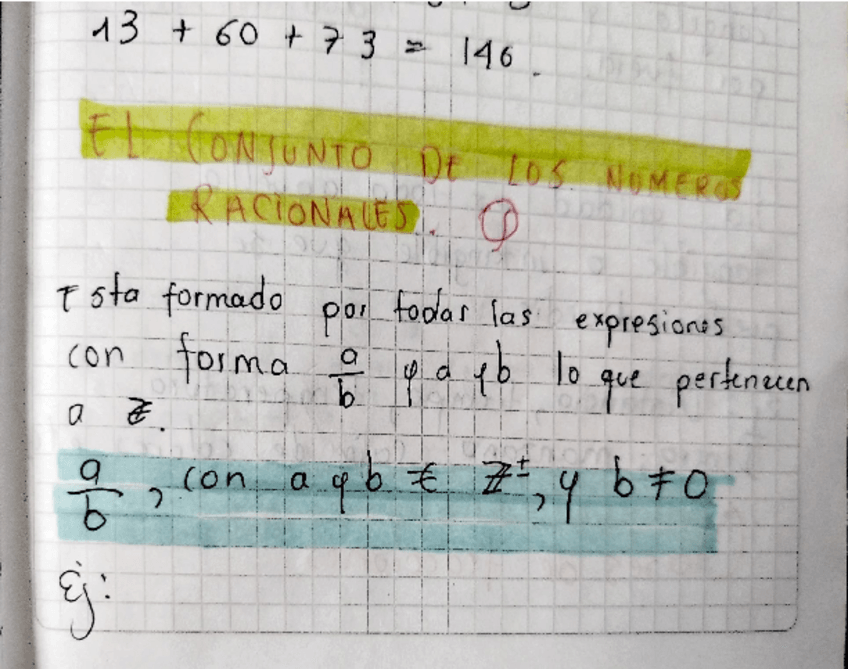 13 + 60 + 73 = 146.
EL CONJUNTO DE LOS NUMEROS
RACIONALES.
Esta formado por todas las expresiones
con forma a/b y a y b lo que pertenecen
a Z.
a/b, con a y b ∈ Z±, y b ≠ 0
Ej: